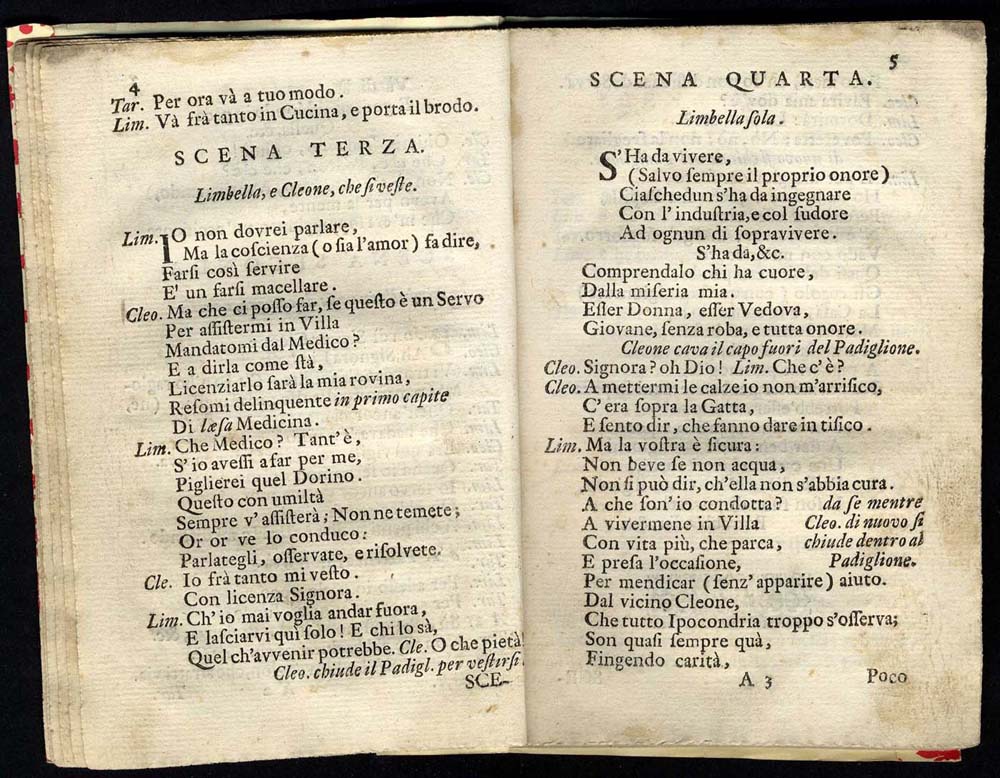 4
Tar. Per ora và a tuo modo.
Lim. Và frà tanto in Cucina, e porta il brodo.
SCENA TERZA.
Limbella, e Cleone, che si veſte.
Lim. IO non dovrei parlare,
Ma la coſcienza (o ſia l'amor) fa dire,
Farſi così ſervire
E' un farſi macellare.
Cleo. Ma che ci poſſo far, ſe queſto è un Servo
Per aſſiſtermi in Villa
Mandatomi dal Medico?
E a dirla come ſtà,
Licenziarlo ſarà la mia rovina,
Reſomi delinquente in primo capite
Di læſa Medicina.
Lim. Che Medico? Tant'è,
S'io aveſſi a far per me,
Piglierei quel Dorino.
Queſto con umiltà
Sempre v'aſſiſterà; Non ne temete;
Or or ve lo conduco:
Parlategli, oſſervate, e riſolvete.
Cle. Io frà tanto mi veſto.
Con licenza Signora.
Lim. Ch'io mai voglia andar fuora,
E laſciarvi quì ſolo! E chi lo sà,
Quel ch'avvenir potrebbe. Cle. O che pietà!
Cleo. chiude il Padigl. per veſtirſi.
SCE-
5
SCENA QUARTA.
Limbella ſola.
S'Ha da vivere,
(Salvo ſempre il proprio onore)
Ciaſchedun s'ha da ingegnare
Con l'induſtria, e col ſudore
Ad ognun di ſopravivere.
S'ha da, &c.
Comprendalo chi ha cuore,
Dalla miſeria mia.
Eſſer Donna, eſſer Vedova,
Giovane, ſenza roba, e tutta onore.
Cleone cava il capo fuori del Padiglione.
Cleo. Signora? oh Dio! Lim. Che c'è?
Cleo. A mettermi le calze io non m'arriſico,
C'era ſopra la Gatta,
E ſento dir, che fanno dare in tiſico.
Lim. Ma la voſtra è ſicura:
Non beve ſe non acqua,
Non ſi può dir, ch'ella non s'abbia cura.
A che ſon'io condotta? da ſe mentre
A vivermene in Villa Cleo. di nuovo ſi
Con vita più, che parca, chiude dentro al
E preſa l'occaſione, Padiglione.
Per mendicar (ſenz'apparire) aiuto.
Dal vicino Cleone,
Che tutto Ipocondria troppo s'oſſerva;
Son quaſi ſempre quà,
Fingendo carità,
A 3 Poco